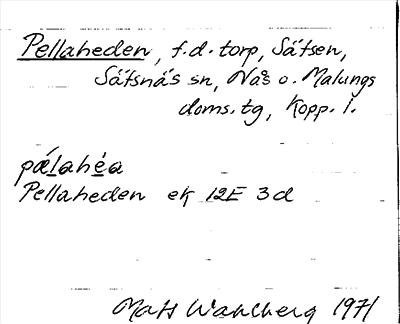 Pellaheden, f.d. torp, Sätsen,
Sätsnäs sn, Nås o. Malungs
doms.tg, Kopp. l.
pǽlahéa
Pellaheden ek 12E 3d
Mats Wahlberg 1971